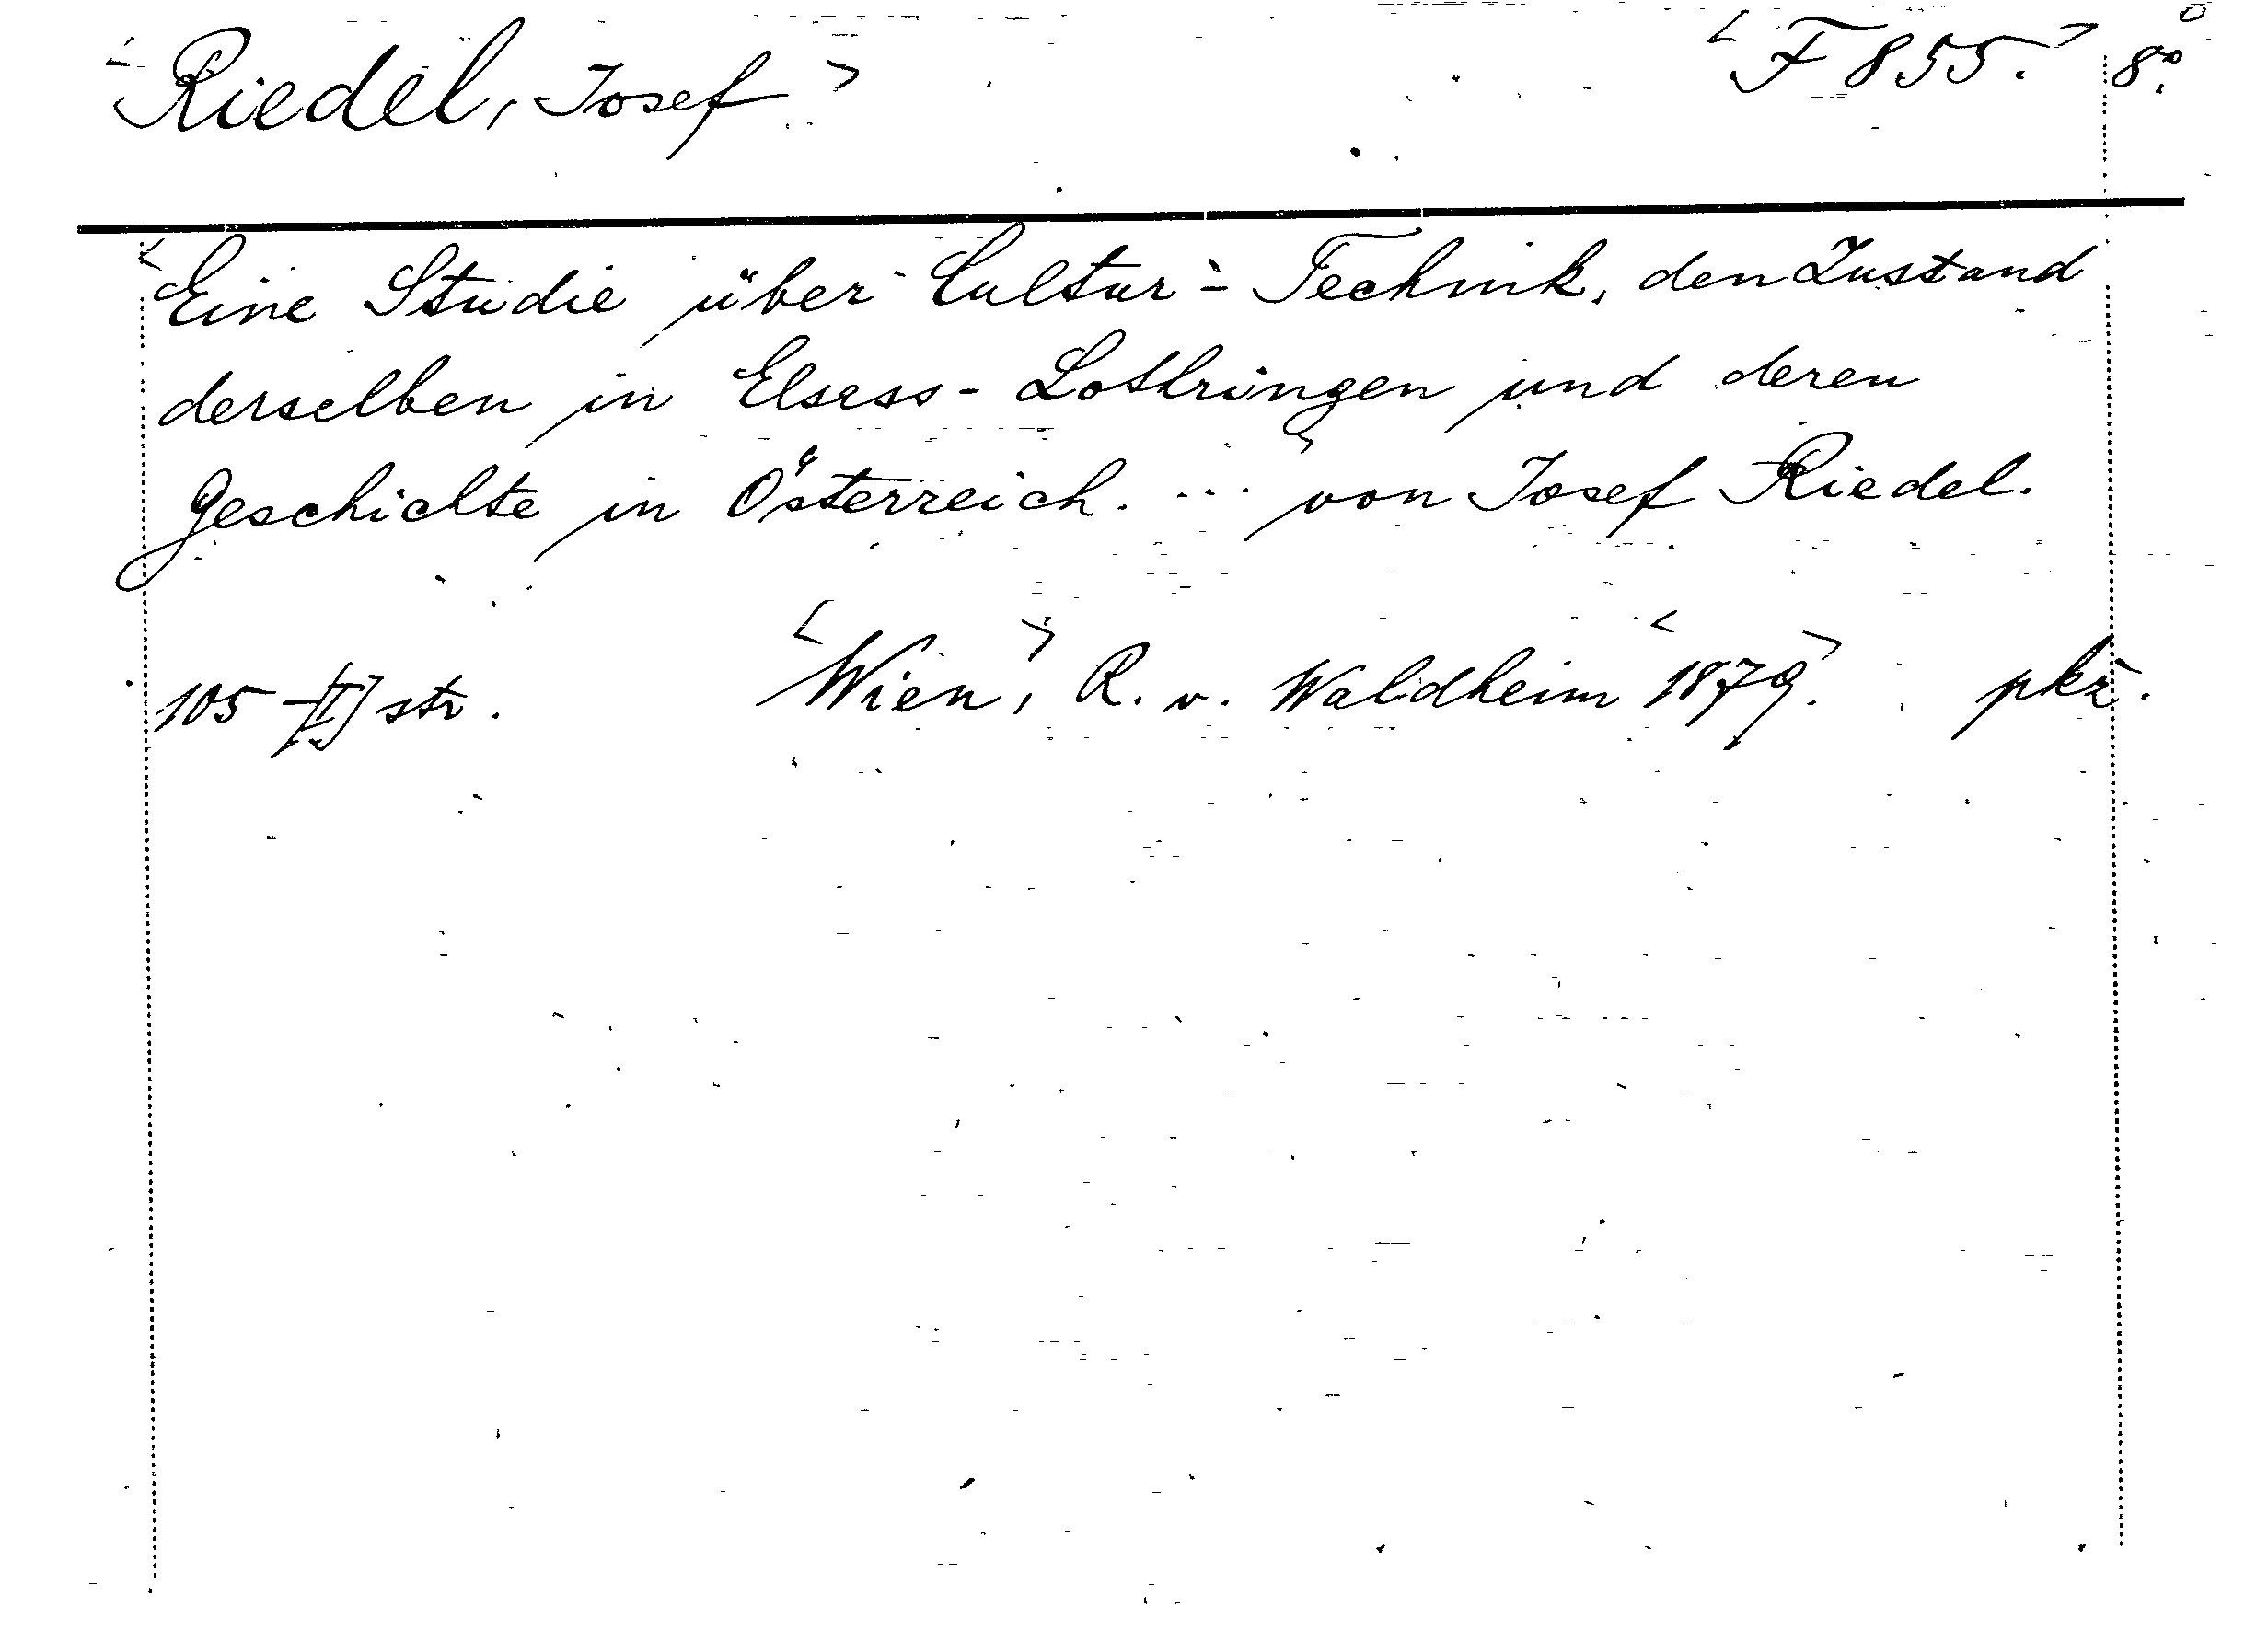 <Riedel, Josef> <F 855.> 8°.
<Eine Studie über Cultur-Technik, den Zustand
derselben in Elsass-Lothringen und deren
Geschichte in Österreich. ...> von Josef Riedel.
105 str. <Wien>, R. v. Waldheim <1879>. pkž.